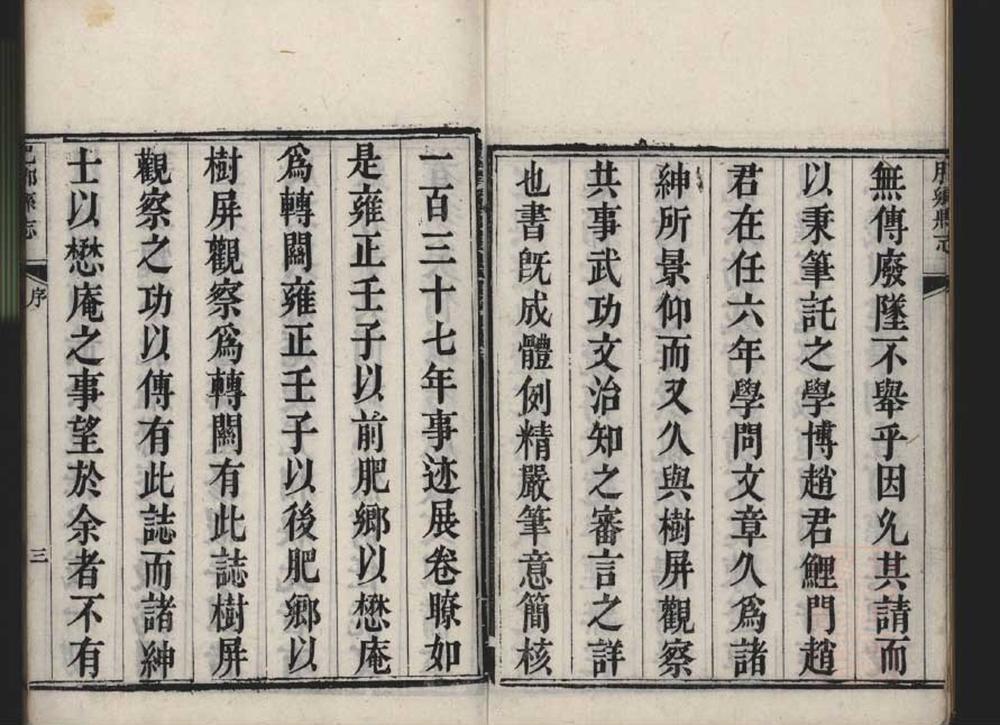 無傳廢墜不舉乎因允其請而
以秉筆託之學博趙君鯉門趙
君在任六年學問文章久爲諸
紳所景仰而又久與樹屏觀察
共事武功文治知之審言之詳
也書旣成體例精嚴筆意簡核
一百三十七年事迹展卷瞭如
是雍正壬子以前肥鄉以懋庵
爲轉關雍正壬子以後肥鄉以
樹屏觀察爲轉關有此誌樹屏
觀察之功以傳有此誌而諸紳
士以懋庵之事望於余者不有
序
三